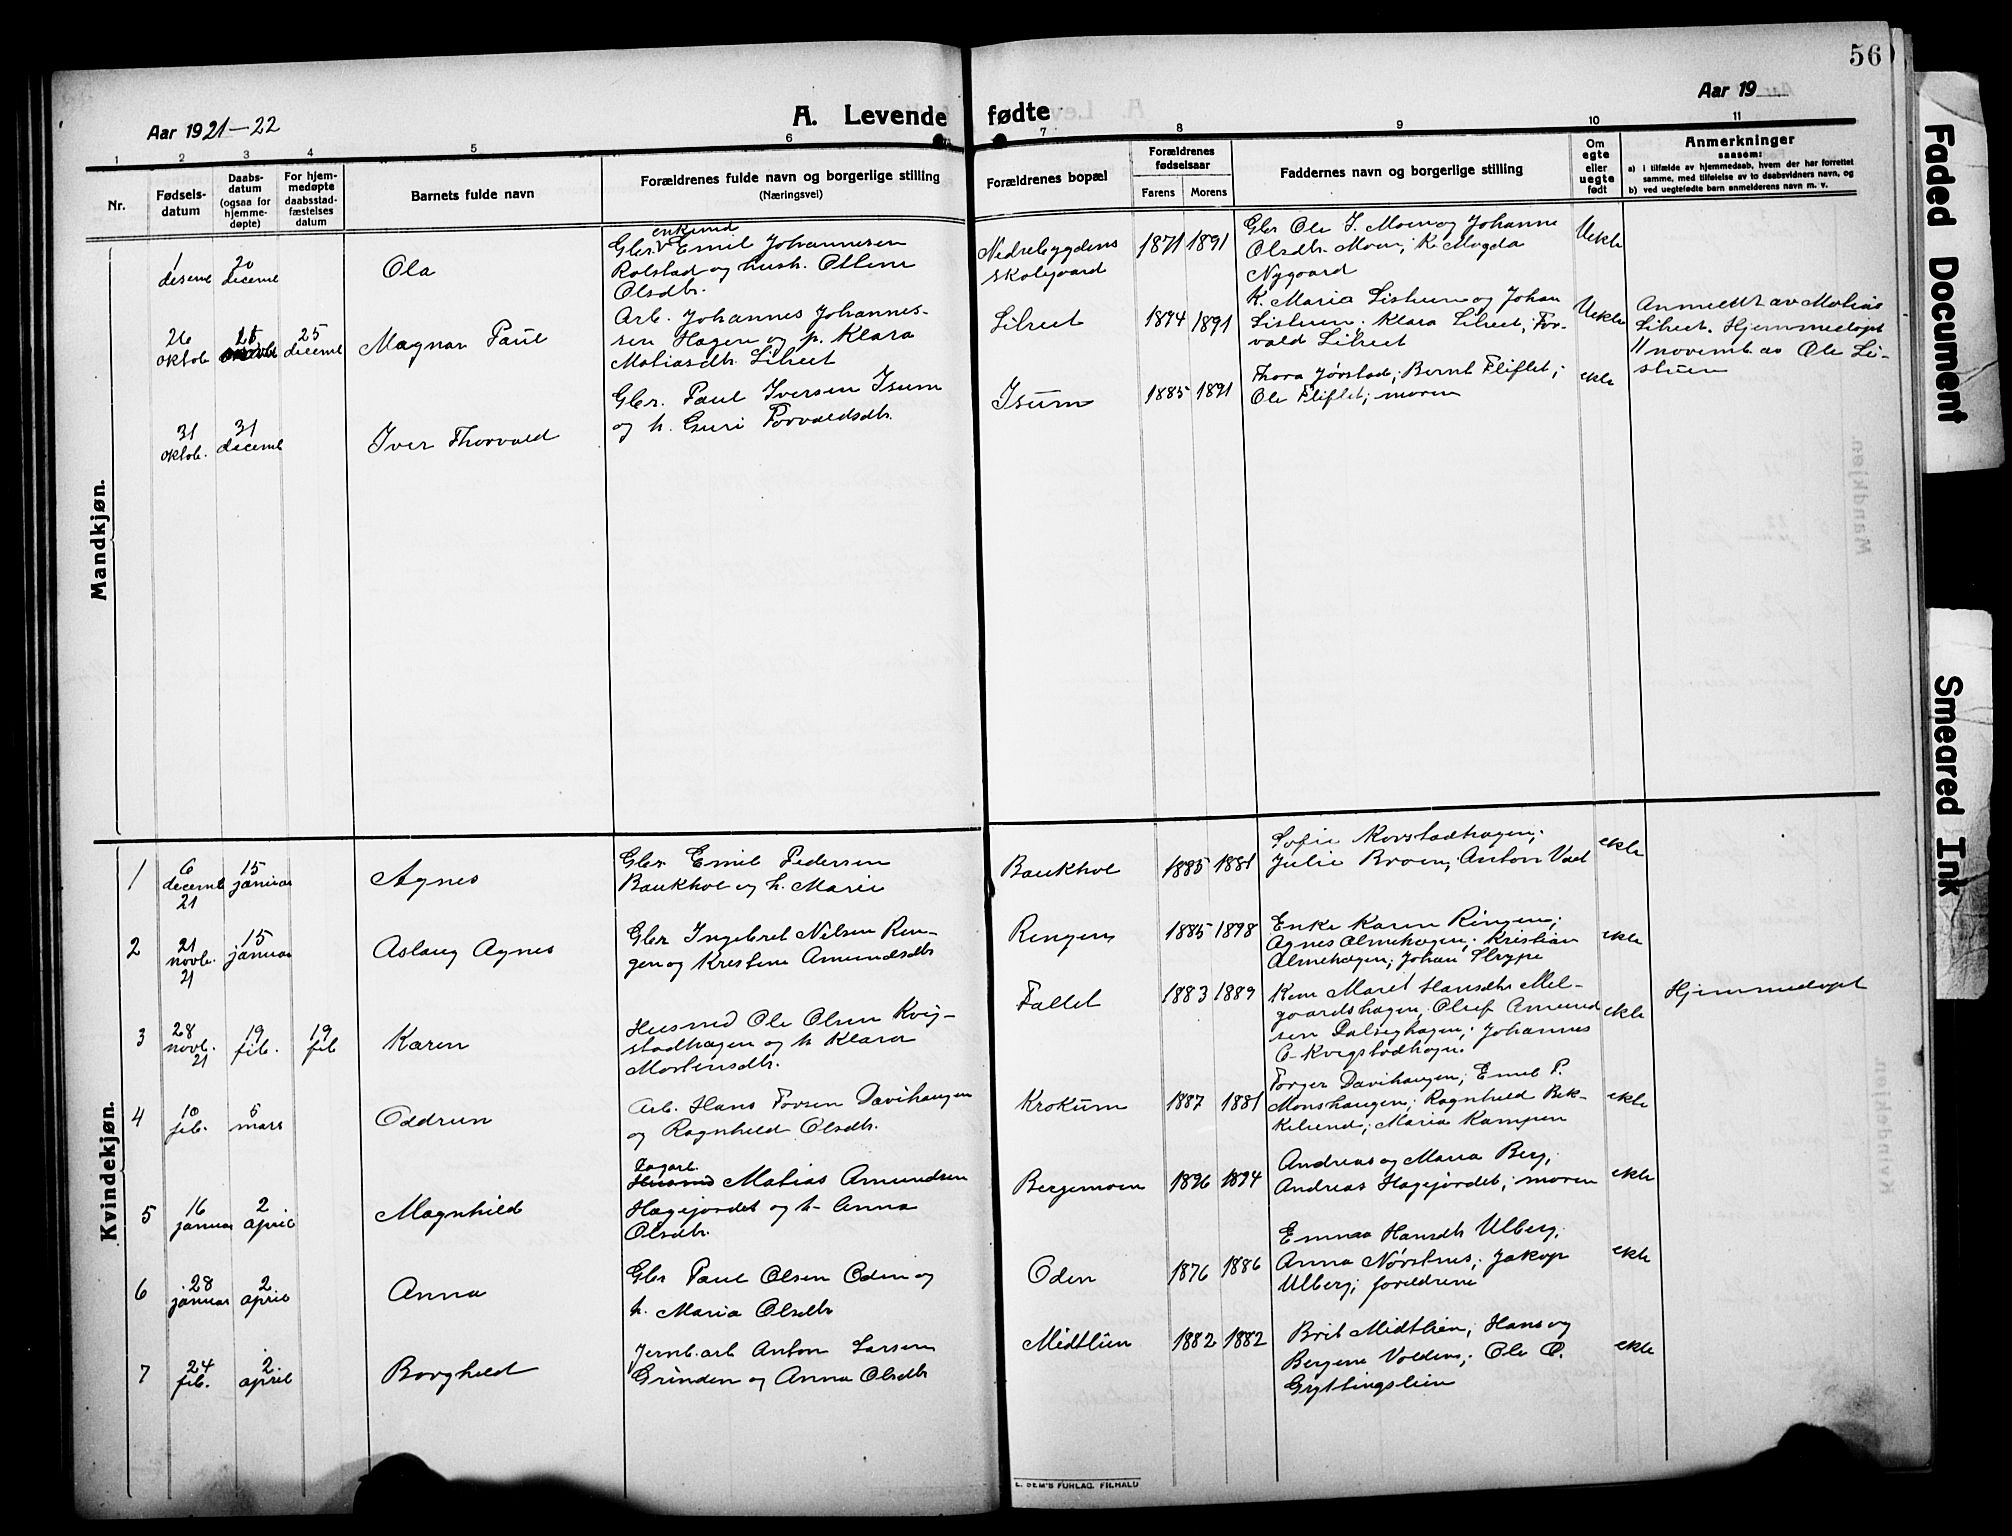 56
Aar 1921-22
A. Levende fødte
Aar 19
1 2 3 4 5 6 7 8 9 10 11
Nr.
Fødsels-
datum
Daabs-
datum
(ogsaa for
hjemme-
døpte)
For hjem-
medøpte
daabsstad-
fæstelses
datum
Barnets fulde navn
Forældrenes fulde navn og borgerlige stilling
(Næringsvei)
Forældrenes bopæl
Forældrenes
fødselsaar
Farens Morens
Faddernes navn og borgerlige stilling
Om
egte
eller
uegte
født
Anmerkninger
saasom:
a) i tilfælde av hjemmedaab, hvem der har forrettet
samme, med tilføielse av to daabsvidners navn, og
b) ved uegtefødte barn anmelderens navn m. v.
Mandkjøn.
1
desemb
20
decemb
Ola
enkemd
Gbr. Emil Johannesen
Rolstad og hush. Oline
Olsdtr.
Nedrebygdens
skolegaard
1871 1891
Gbr Ole J. Moen og Johanne
Olsdtr. Moen; K. Magda
Nygaard
Uekte
26
oktob
25
decemb
Magnar Paul
Arb. Johannes Johannes-
sen Hagen og p. Klara
Matiasdtr. Lihret
1894 1891
K. Maria Listuen og Johan
Listuen; Klara
Uekte
Anmeldt av Matias
Hjemmedøpt
11 novemb av Ole Li-
stuen
31
oktob.
31
decemb
Iver Thorvald
Gbr. Paul Iversen Isum
og h. Guri Torvaldsdtr.
Isum
1885 1891
Thora Jørstad; Bernt Fliflet;
Ole Fliflet; moren
ekte
Kvindekjøn.
1
6
decemb
21
15
januar
Agnes
Gbr Emil Pedersen
Baukhol og h. Marie
Baukhol
1885 1881
Sofie Korstadhagen;
Julie Broen; Anton Vad
ekte
2
21
novb.
21
15
januar
Aslaug Agnes
Gbr Ingebret Nilsen Rin-
gen og Kristine Amundsdtr
Ringen
1885 1898
Enke Karen Ringen;
Agnes Almehagen; Kristian
Almehagen; Johan Strype
ekte
3
28
novb.
21
19
feb.
19
feb
Karen
Husmd Ole Olsen Kvig-
stadhagen og h Klara
Mortensdtr.
Fallet
1883 1889
Kone Marit Hansdtr Mel-
gaardshagen; Oluf Amund
sen Dalseghagen; Johannes
O. Kvigstadhagen.
ekte
Hjemmedøpt
4
10
feb.
5
mars
Oddrun
Arb. Hans Torsen Davihaugen
og Ragnhild Olsdtr.
Krokum
1887 1881
Torger Davihaugen; Emil P.
Monshaugen; Ragnhild Bek-
kelund; Maria Kampen
ekte
5
16
januar
2
april
Magnhild
Dagarb.
Husmd Matias Amundsen
Hagejordet og h. Anna
Olsdtr.
Bergemoen
1896 1894
Andreas og Maria Berg;
Andreas Hagejordet; moren
ekte
6
28
januar
2
april
Anna
Gbr Paul Olsen Oden og
h. Maria Olsdtr
Oden
1876 1886
Emma Hansdtr Ulberg;
Anna Nørstnes; Jakop
Ulberg; foreldrene
ekte
7
24
feb.
2
april
Borghild
Jernb.arb Anton Larsen
Grinden og Anna Olsdtr
Midtlien
1882 1882
Brit Midtlien; Hans og
Bergine Volden; Ole O.
Gryttingslien
ekte
E. SEM'S FORLAG, FR.HALD
Faded Document
Smeared Ink